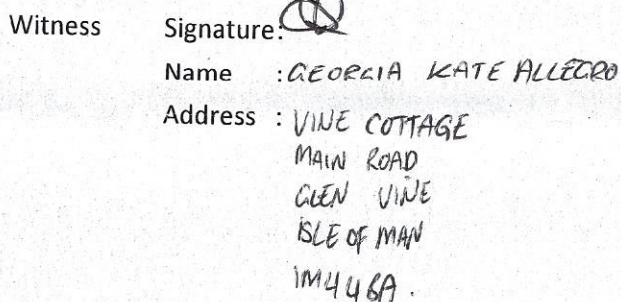 Witness Signature:
Name : GEORGIA KATE ALLEGRO
Address : VINE COTTAGE
MAIN ROAD
GLEN VINE
ISLE OF MAN
IM4 4BA.